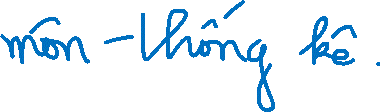 môn - thống kê.